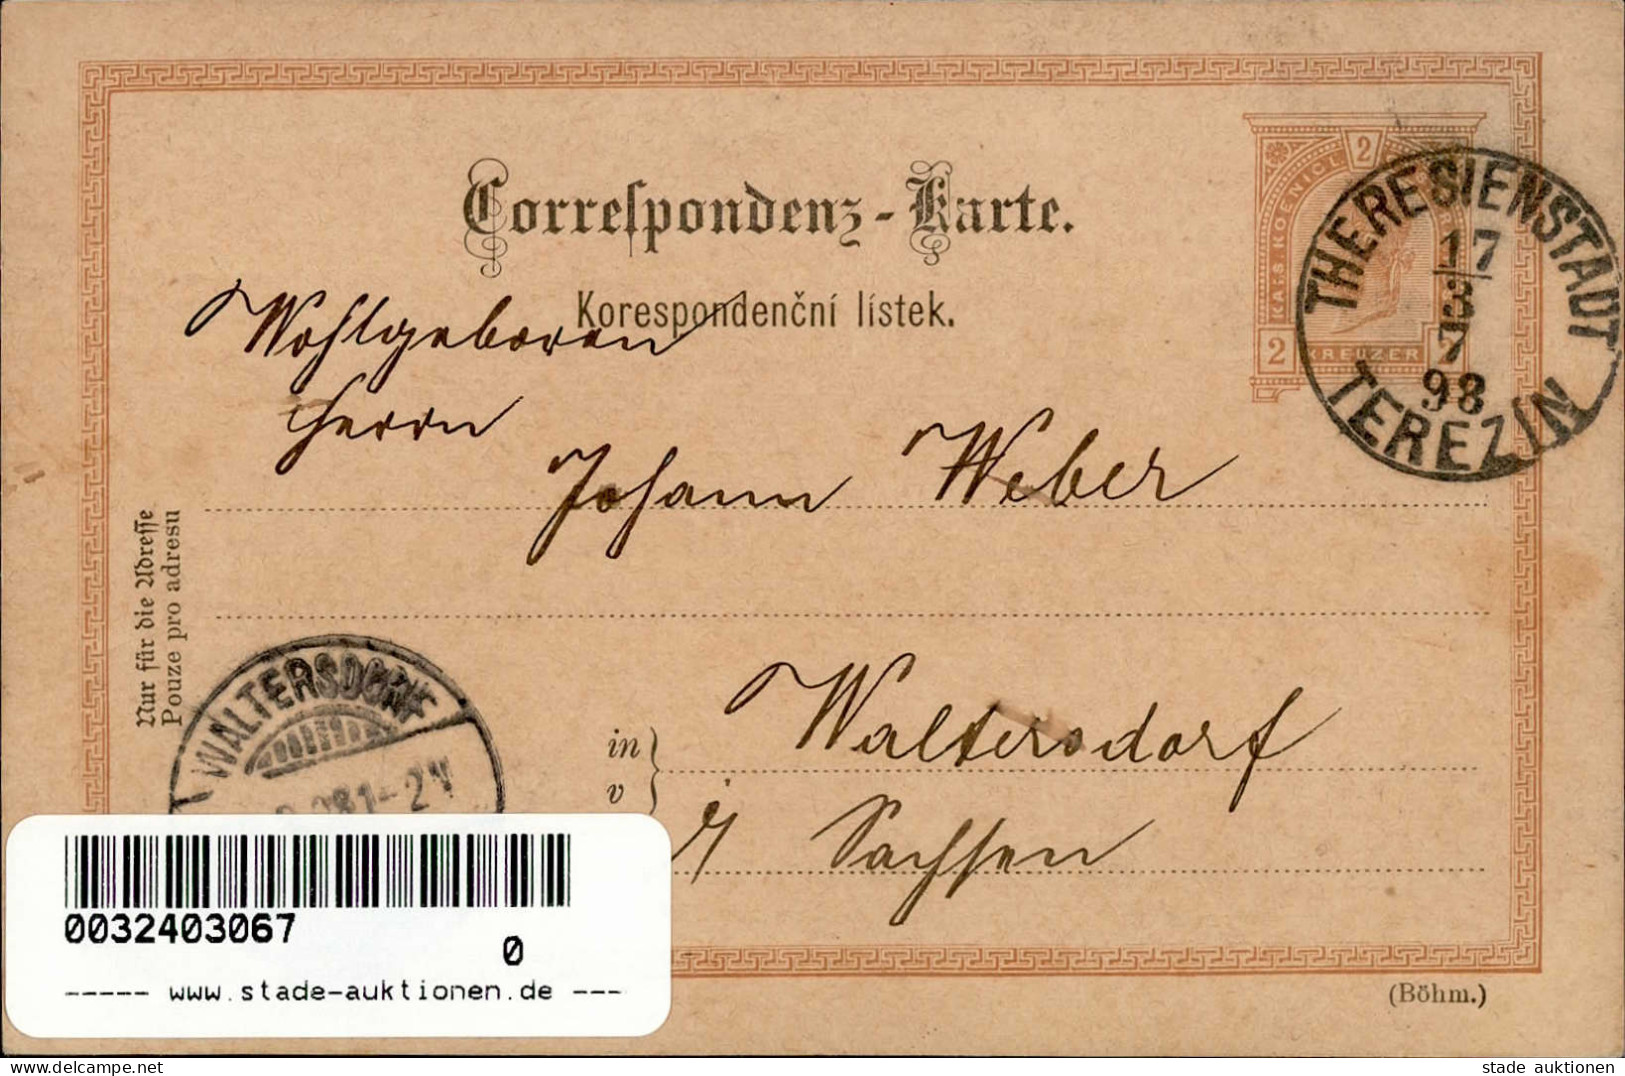 Correspondenz-Karte.
Korespondenční lístek.
2
KAIS. KOENIGL.
2
KREUZER
THERESIENSTADT
17
3
7
98
TEREZÍN
Wohlgeboren
Herrn
Johann Weber
Nur für die Adresse
Pouze pro adresu
WALTERSDORF
98 1-2 N
in
v
Waltersdorf
i/ Sachsen
0032403067
0
----- www.stade-auktionen.de ---
(Böhm.)
www.delcampe.net
stade auktionen